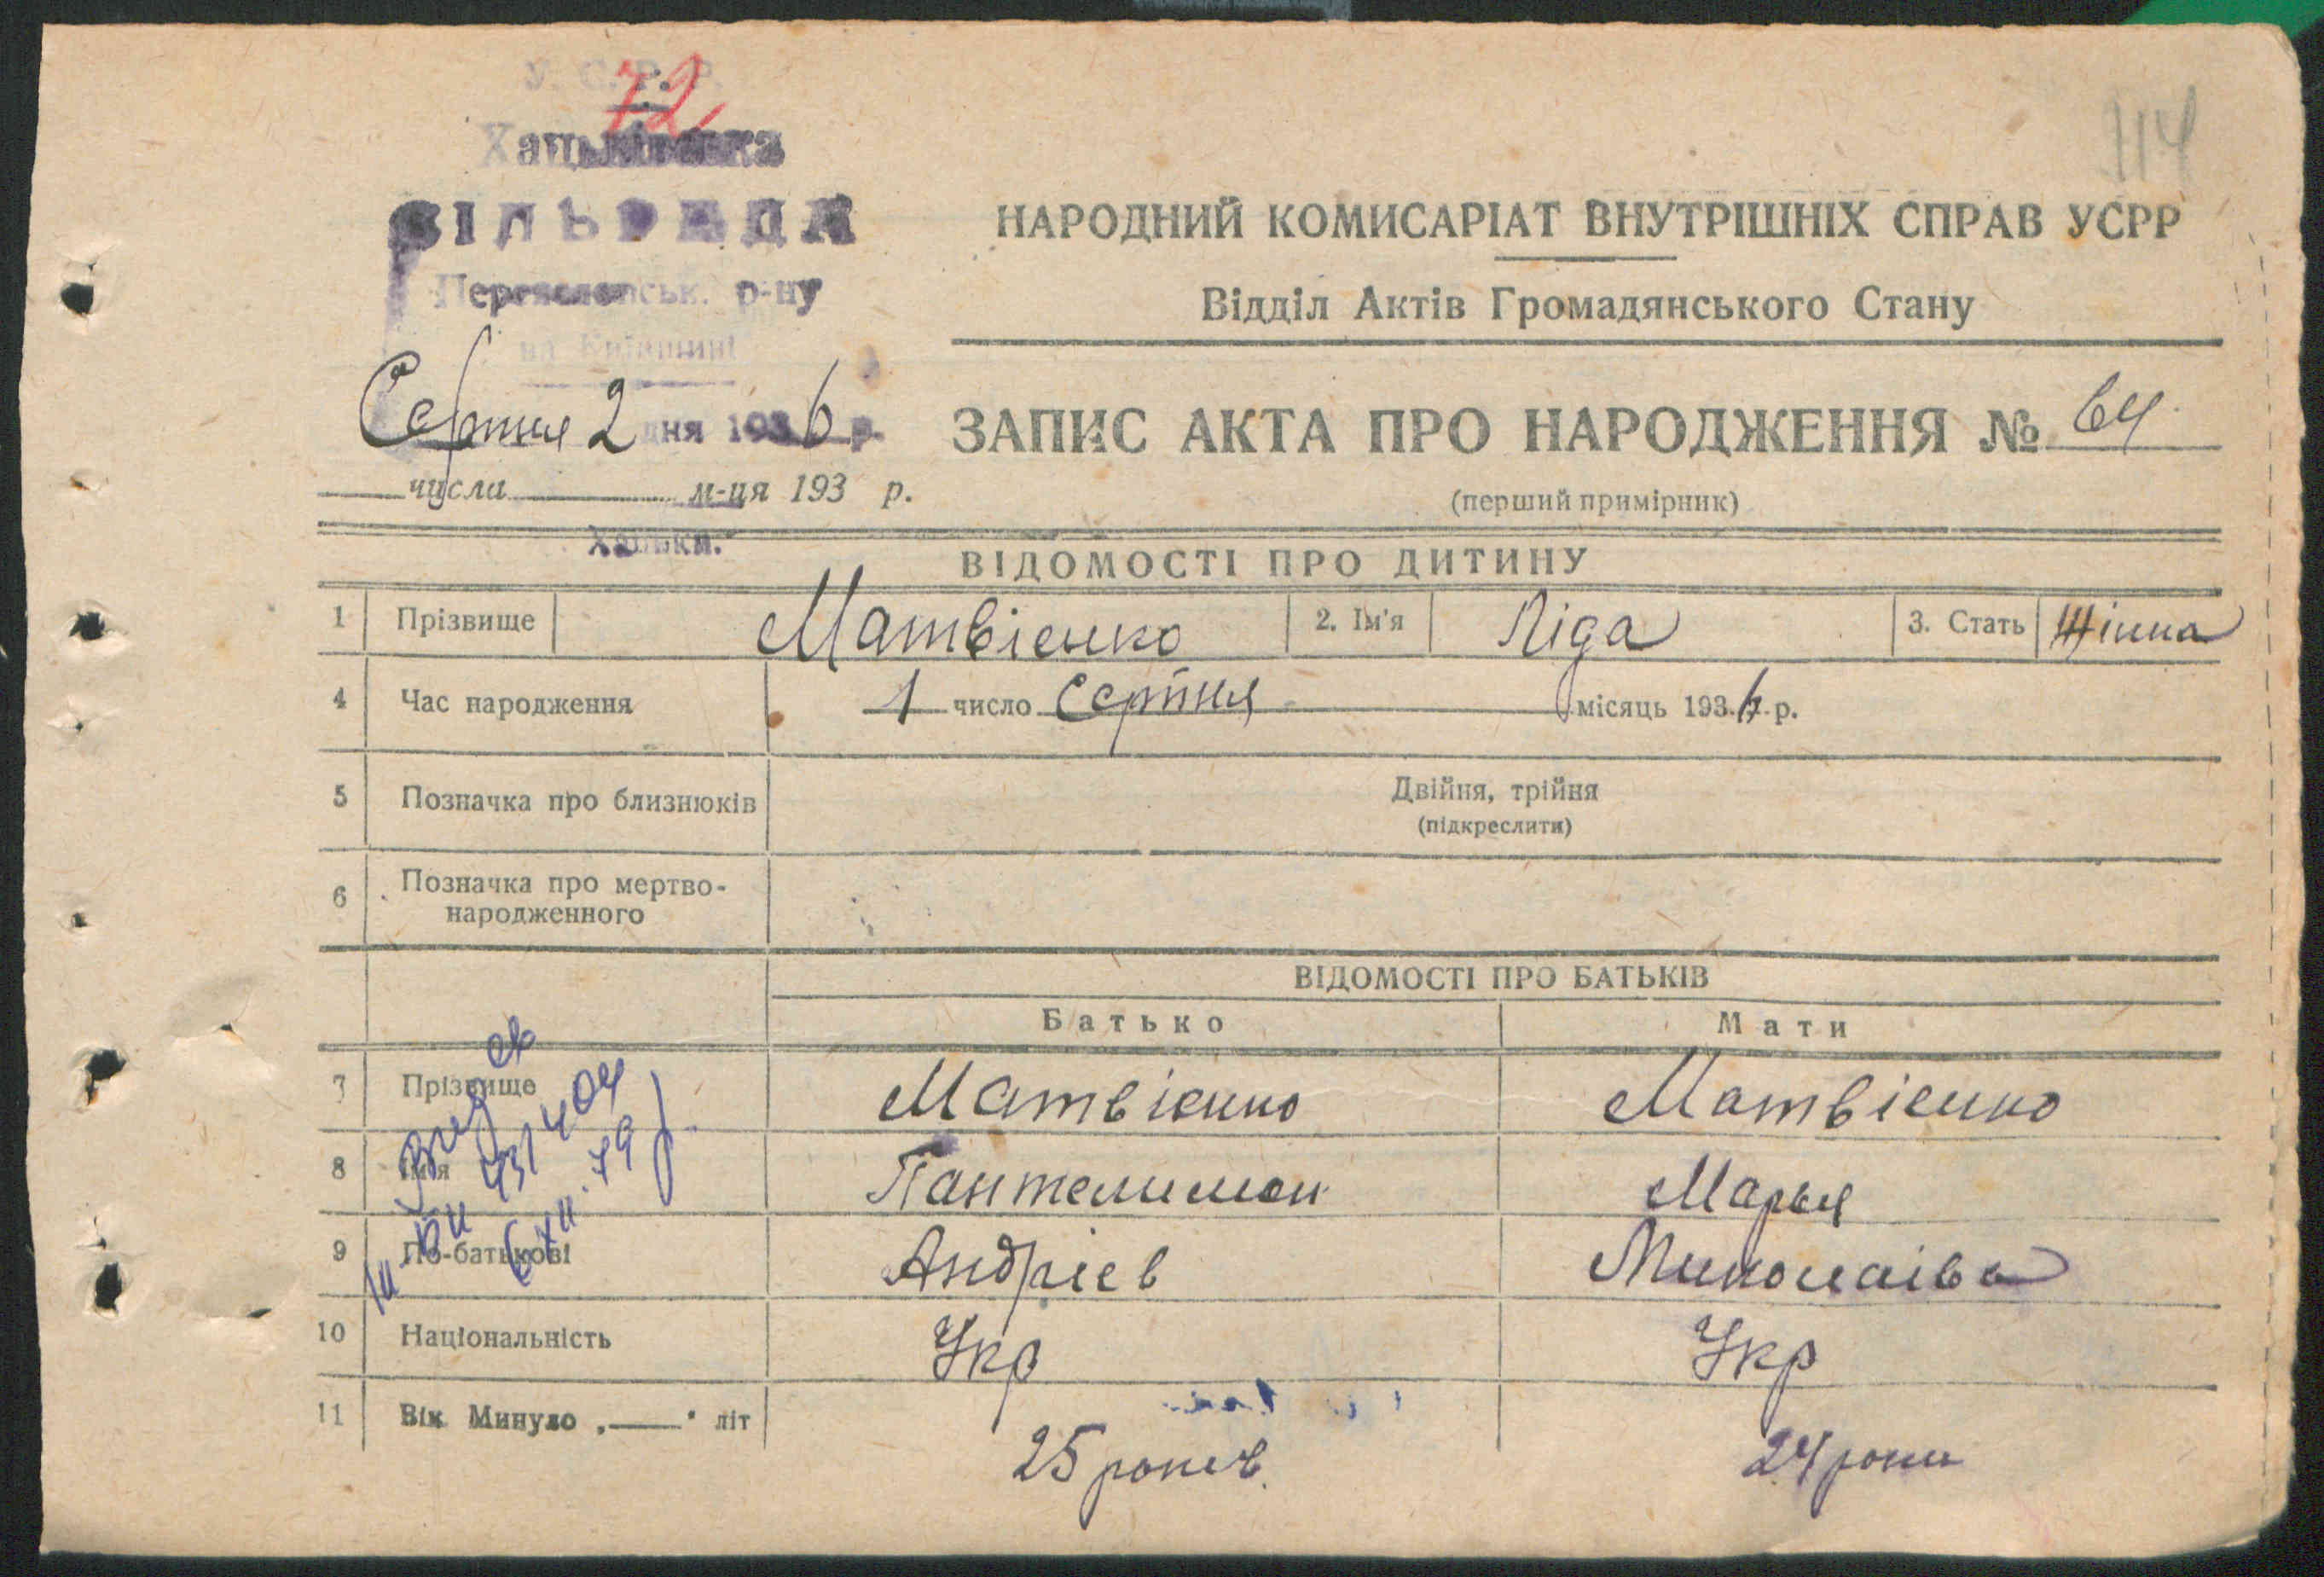 У. С. Р. Р.
72
114
Хацьківська
СІЛЬРАДА
Переяславськ. р-ну
на Київщині
Серпня 2 дня 1936 р.
числа м-ця 193 р.
Хацьки.
НАРОДНИЙ КОМИСАРІАТ ВНУТРІШНІХ СПРАВ УСРР
Відділ Актів Громадянського Стану
ЗАПИС АКТА ПРО НАРОДЖЕННЯ № 64
(перший примірник)
ВІДОМОСТІ ПРО ДИТИНУ
1 Прізвище Матвієнко 2. Ім'я Ліда 3. Стать Жінка
4 Час народження 1 число Серпня місяць 1936 р.
5 Позначка про близнюків Двійня, трійня
(підкреслити)
6 Позначка про мертво-
народженного
ВІДОМОСТІ ПРО БАТЬКІВ
Батько Мати
7 Прізвище Матвієнко Матвієнко
8 Імя Пантелимон Марья
9 По-батькові Андрієв Миколаіва
10 Національність Укр Укр
11 Вік Минуло „ — " літ 25 років. 24 роки